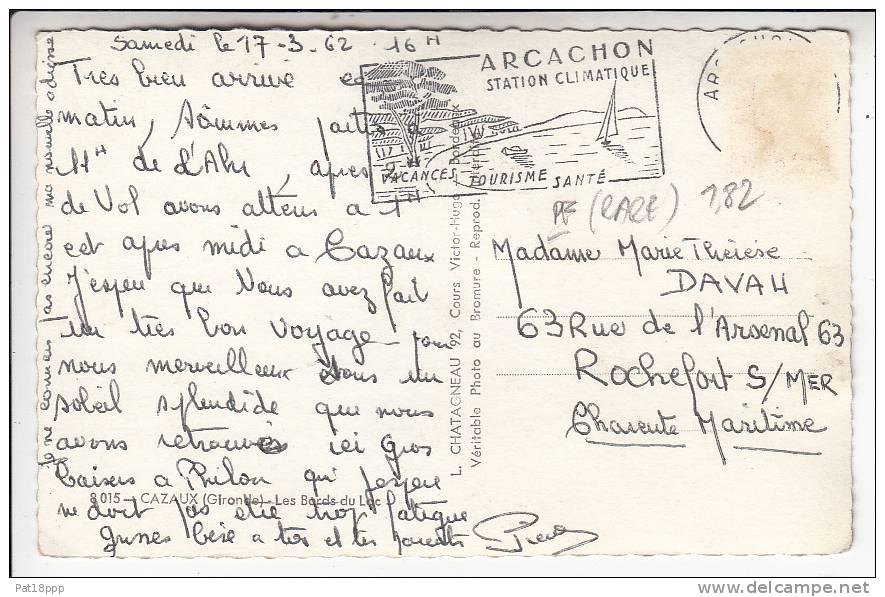 Samedi le 17-3-62 16H
Tres bien arrivé
matin, sommes partis a
11H de , apres 2H
de Vol avons atteris a 1H
cet apres midi a Cazaux
J'espere que Vous avez fait
un tres bon voyage pour
nous merveilleux un
soleil splendide que nous
avons retrouvés ici Gros
Baisers a Philou qui j'espere
ne doit pas etre trop fatigué
bise a toi et tes parents
je ne connais pas encore ma nouvelle adresse
ARCACHON
STATION CLIMATIQUE
VACANCES TOURISME SANTÉ
PF (RARE) 1,82
Madame Marie Thérèse
DAVAU
63 Rue de l'Arsenal 63
Rochefort S/MER
Charente Maritime
L. CHATAGNEAU 92, Cours Victor-Hugo - Bordeaux
Véritable Photo au Bromure - Reprod. Interdite
8015 - CAZAUX (Gironde) - Les Bords du Lac
Pat18ppp
www.delcampe.net